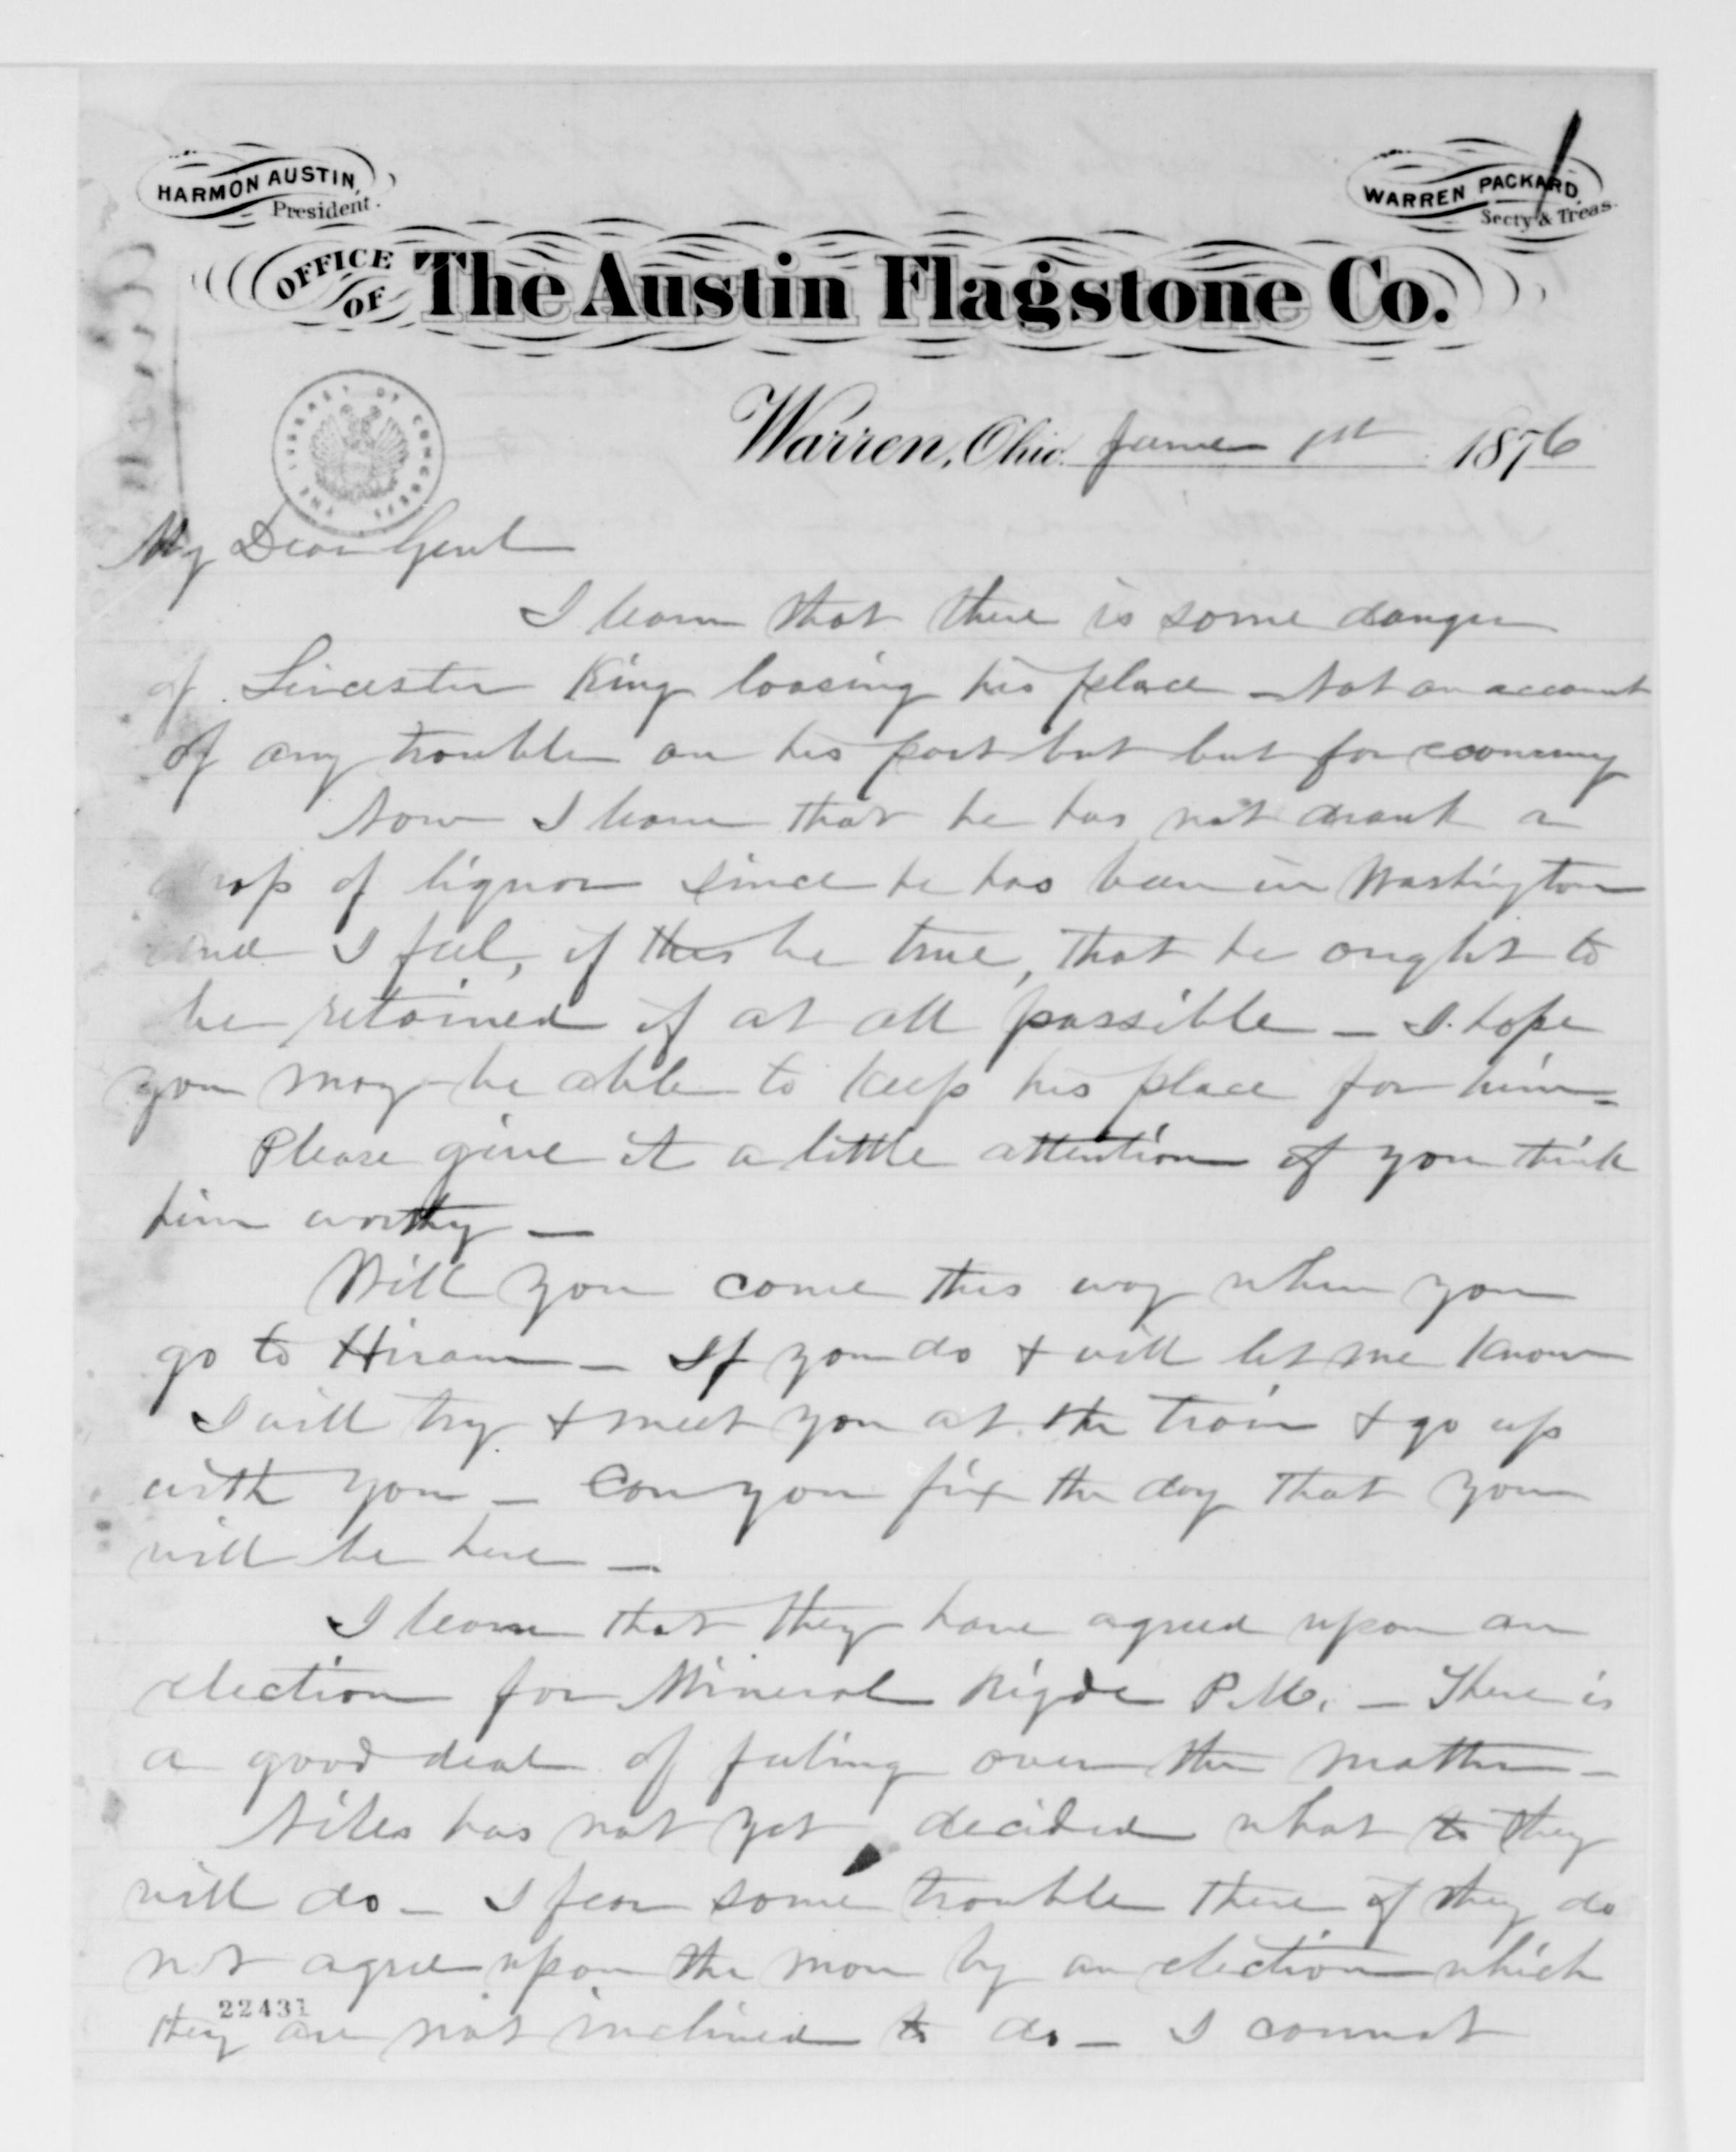 HARMON AUSTIN,
President.
WARREN PACKARD,
Secty & Treas.
OFFICE OF The Austin Flagstone Co.
THE LIBRARY OF CONGRESS
Warren, Ohio. June 1st 1876
My Dear Genl
I learn that there is some danger
of Leicester King loosing his place - Not on account
of any trouble on his part but but for economy
Now I learn that he has not drank a
drop of liquor since he has been in Washington
and I feel, if this be true, that he ought to
be retained if at all possible - I hope
you may be able to keep his place for him -
Please give it a little attention if you think
him worthy -
Will you come this way when you
go to Hiram - If you do & will let me know
I will try & meet you at the train & go up
with you - Can you fix the day that you
will be here -
I learn that they have agreed upon an
election for Mineral Rigde P.M. - There is
a good deal of feeling over the matter -
Niles has not yet decided what to they
will do - I fear some trouble there if they do
not agree upon the man by an election which
they are not inclined to do - I cannot
22431